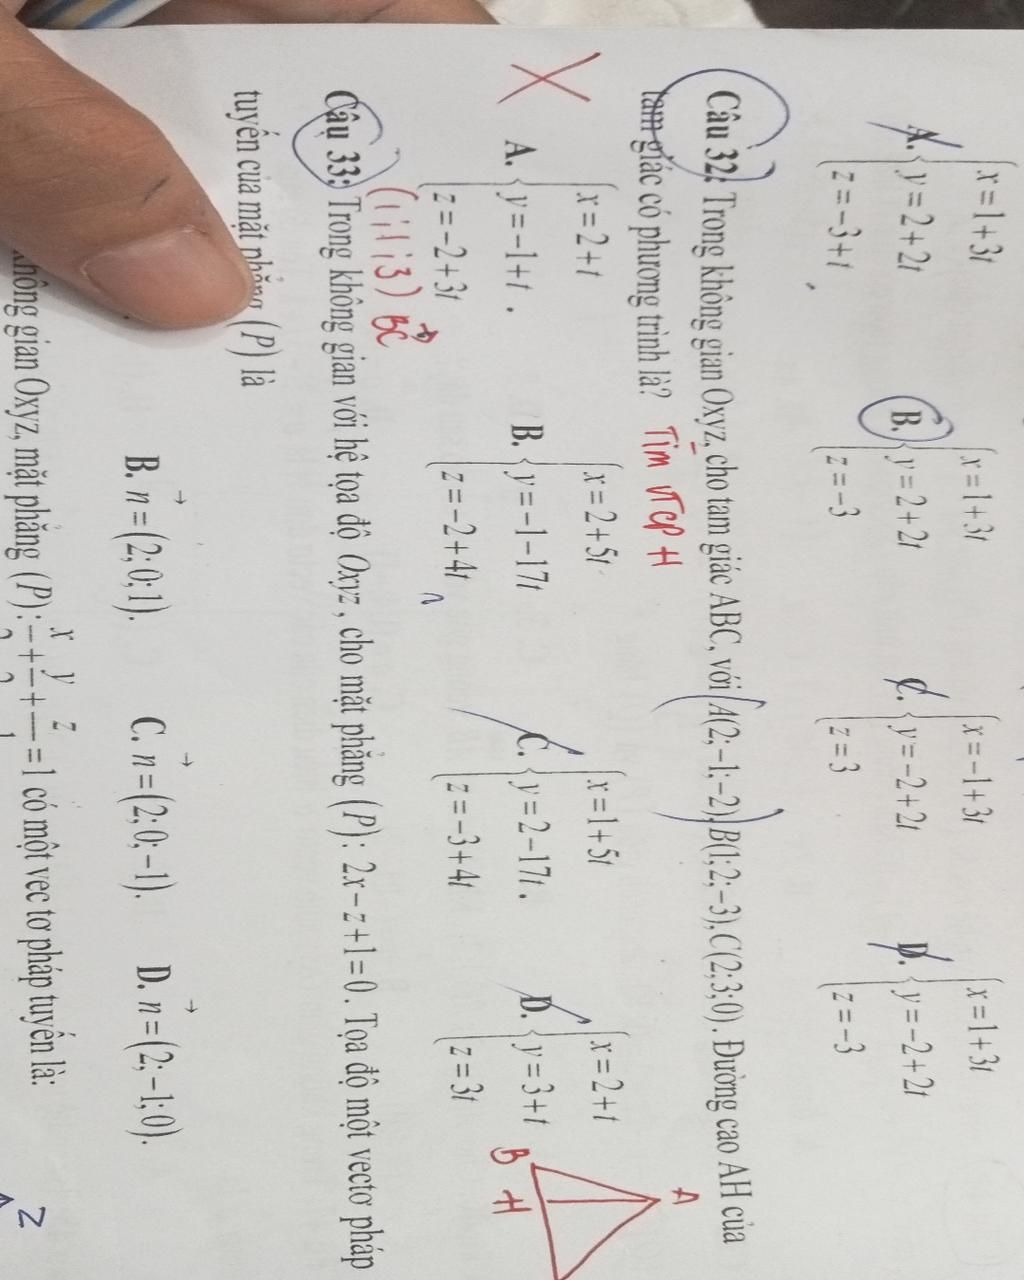 A. { x = 1 + 3t y = 2 + 2t z = -3 + t
B. { x = 1 + 3t y = 2 + 2t z = -3
C. { x = -1 + 3t y = -2 + 2t z = 3
D. { x = 1 + 3t y = -2 + 2t z = -3
Câu 32: Trong không gian Oxyz, cho tam giác ABC, với A(2;-1;-2), B(1;2;-3), C(2;3;0). Đường cao AH của
tam giác có phương trình là? Tìm VTCP H
A. { x = 2 + t y = -1 + t. z = -2 + 3t
B. { x = 2 + 5t y = -1 - 17t z = -2 + 4t
C. { x = 1 + 5t y = 2 - 17t. z = -3 + 4t
D. { x = 2 + t y = 3 + t z = 3t
A
B
H
(1;1;3) BC
Câu 33: Trong không gian với hệ tọa độ Oxyz, cho mặt phẳng (P): 2x - z + 1 = 0. Tọa độ một vectơ pháp
tuyến của mặt phẳng (P) là
B. n = (2;0;1).
C. n = (2;0;-1).
D. n = (2;-1;0).
không gian Oxyz, mặt phẳng (P): x y z = 1 có một vec tơ pháp tuyến là:
2